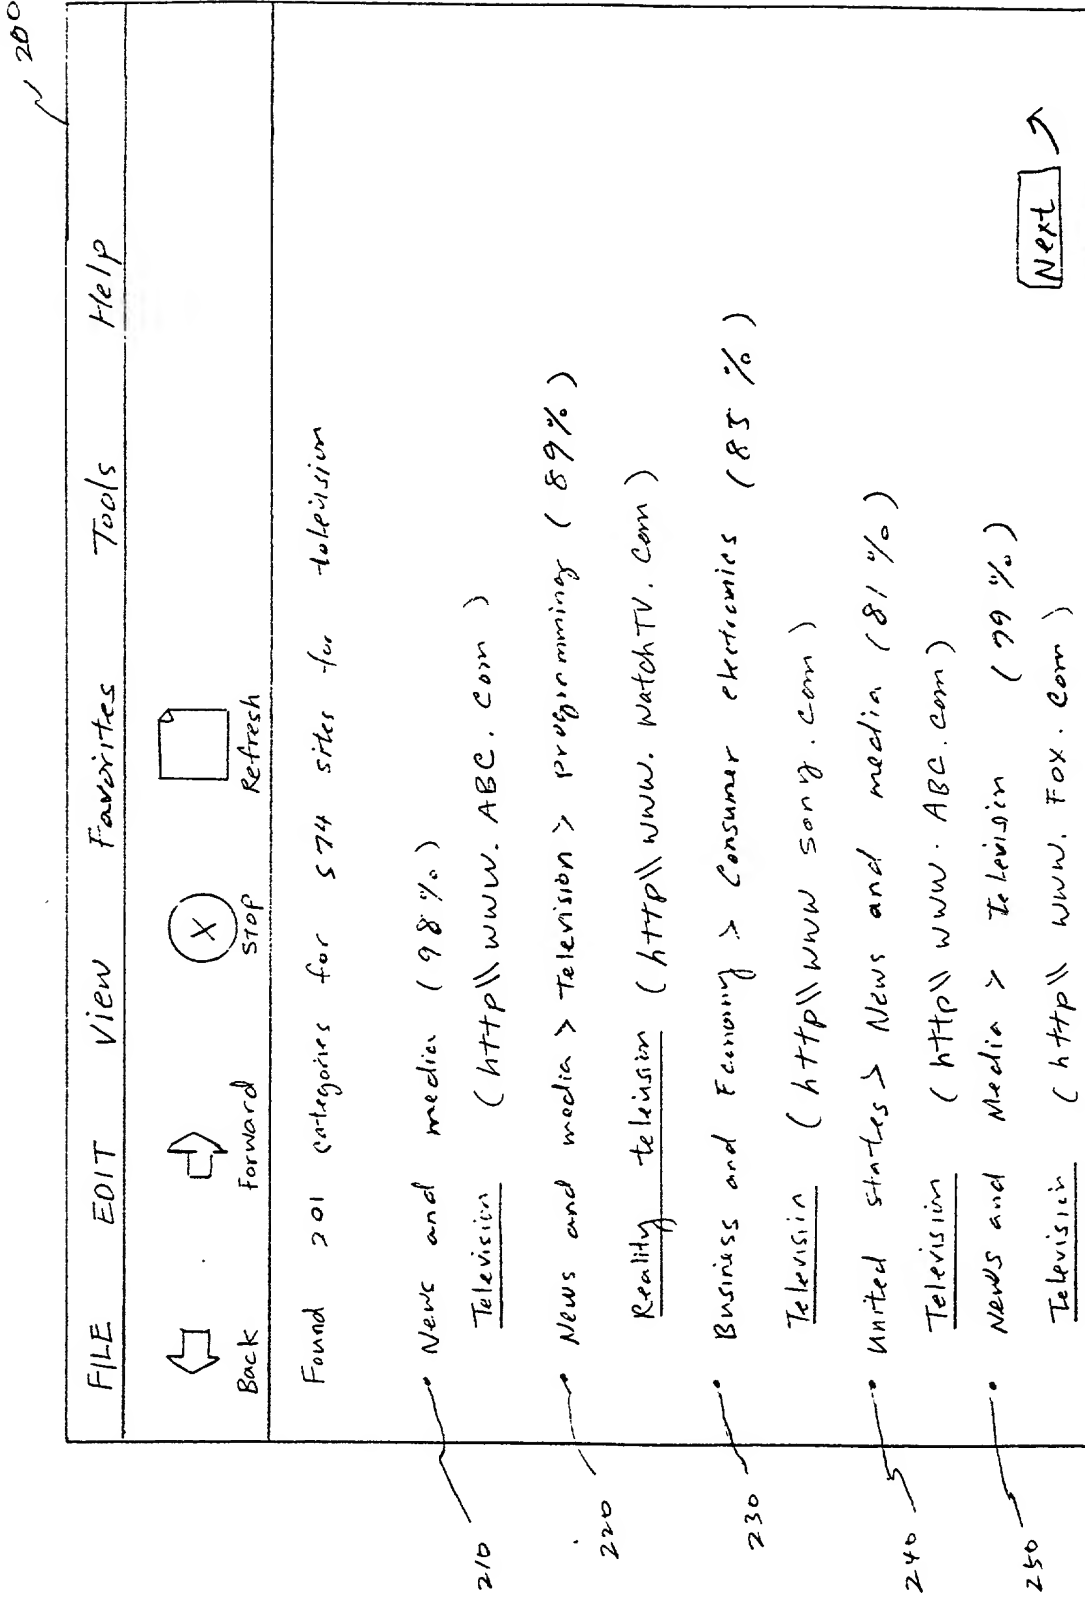 200
FILE EDIT View Favorites Tools Help
Back Forward STOP Refresh
Found 201 categories for 574 sites for television
210 • News and media (98%)
Television (http\\www.ABC.com)
220 • News and media > Television > programming (89%)
Reality television (http\\www.WatchTV.com)
230 • Business and Economy > Consumer electronics (85%)
Television (http\\www sony.com)
240 • United states > News and media (81%)
Television (http\\www.ABC.com)
250 • News and Media > Television (99%)
Television (http\\www.Fox.com)
Next